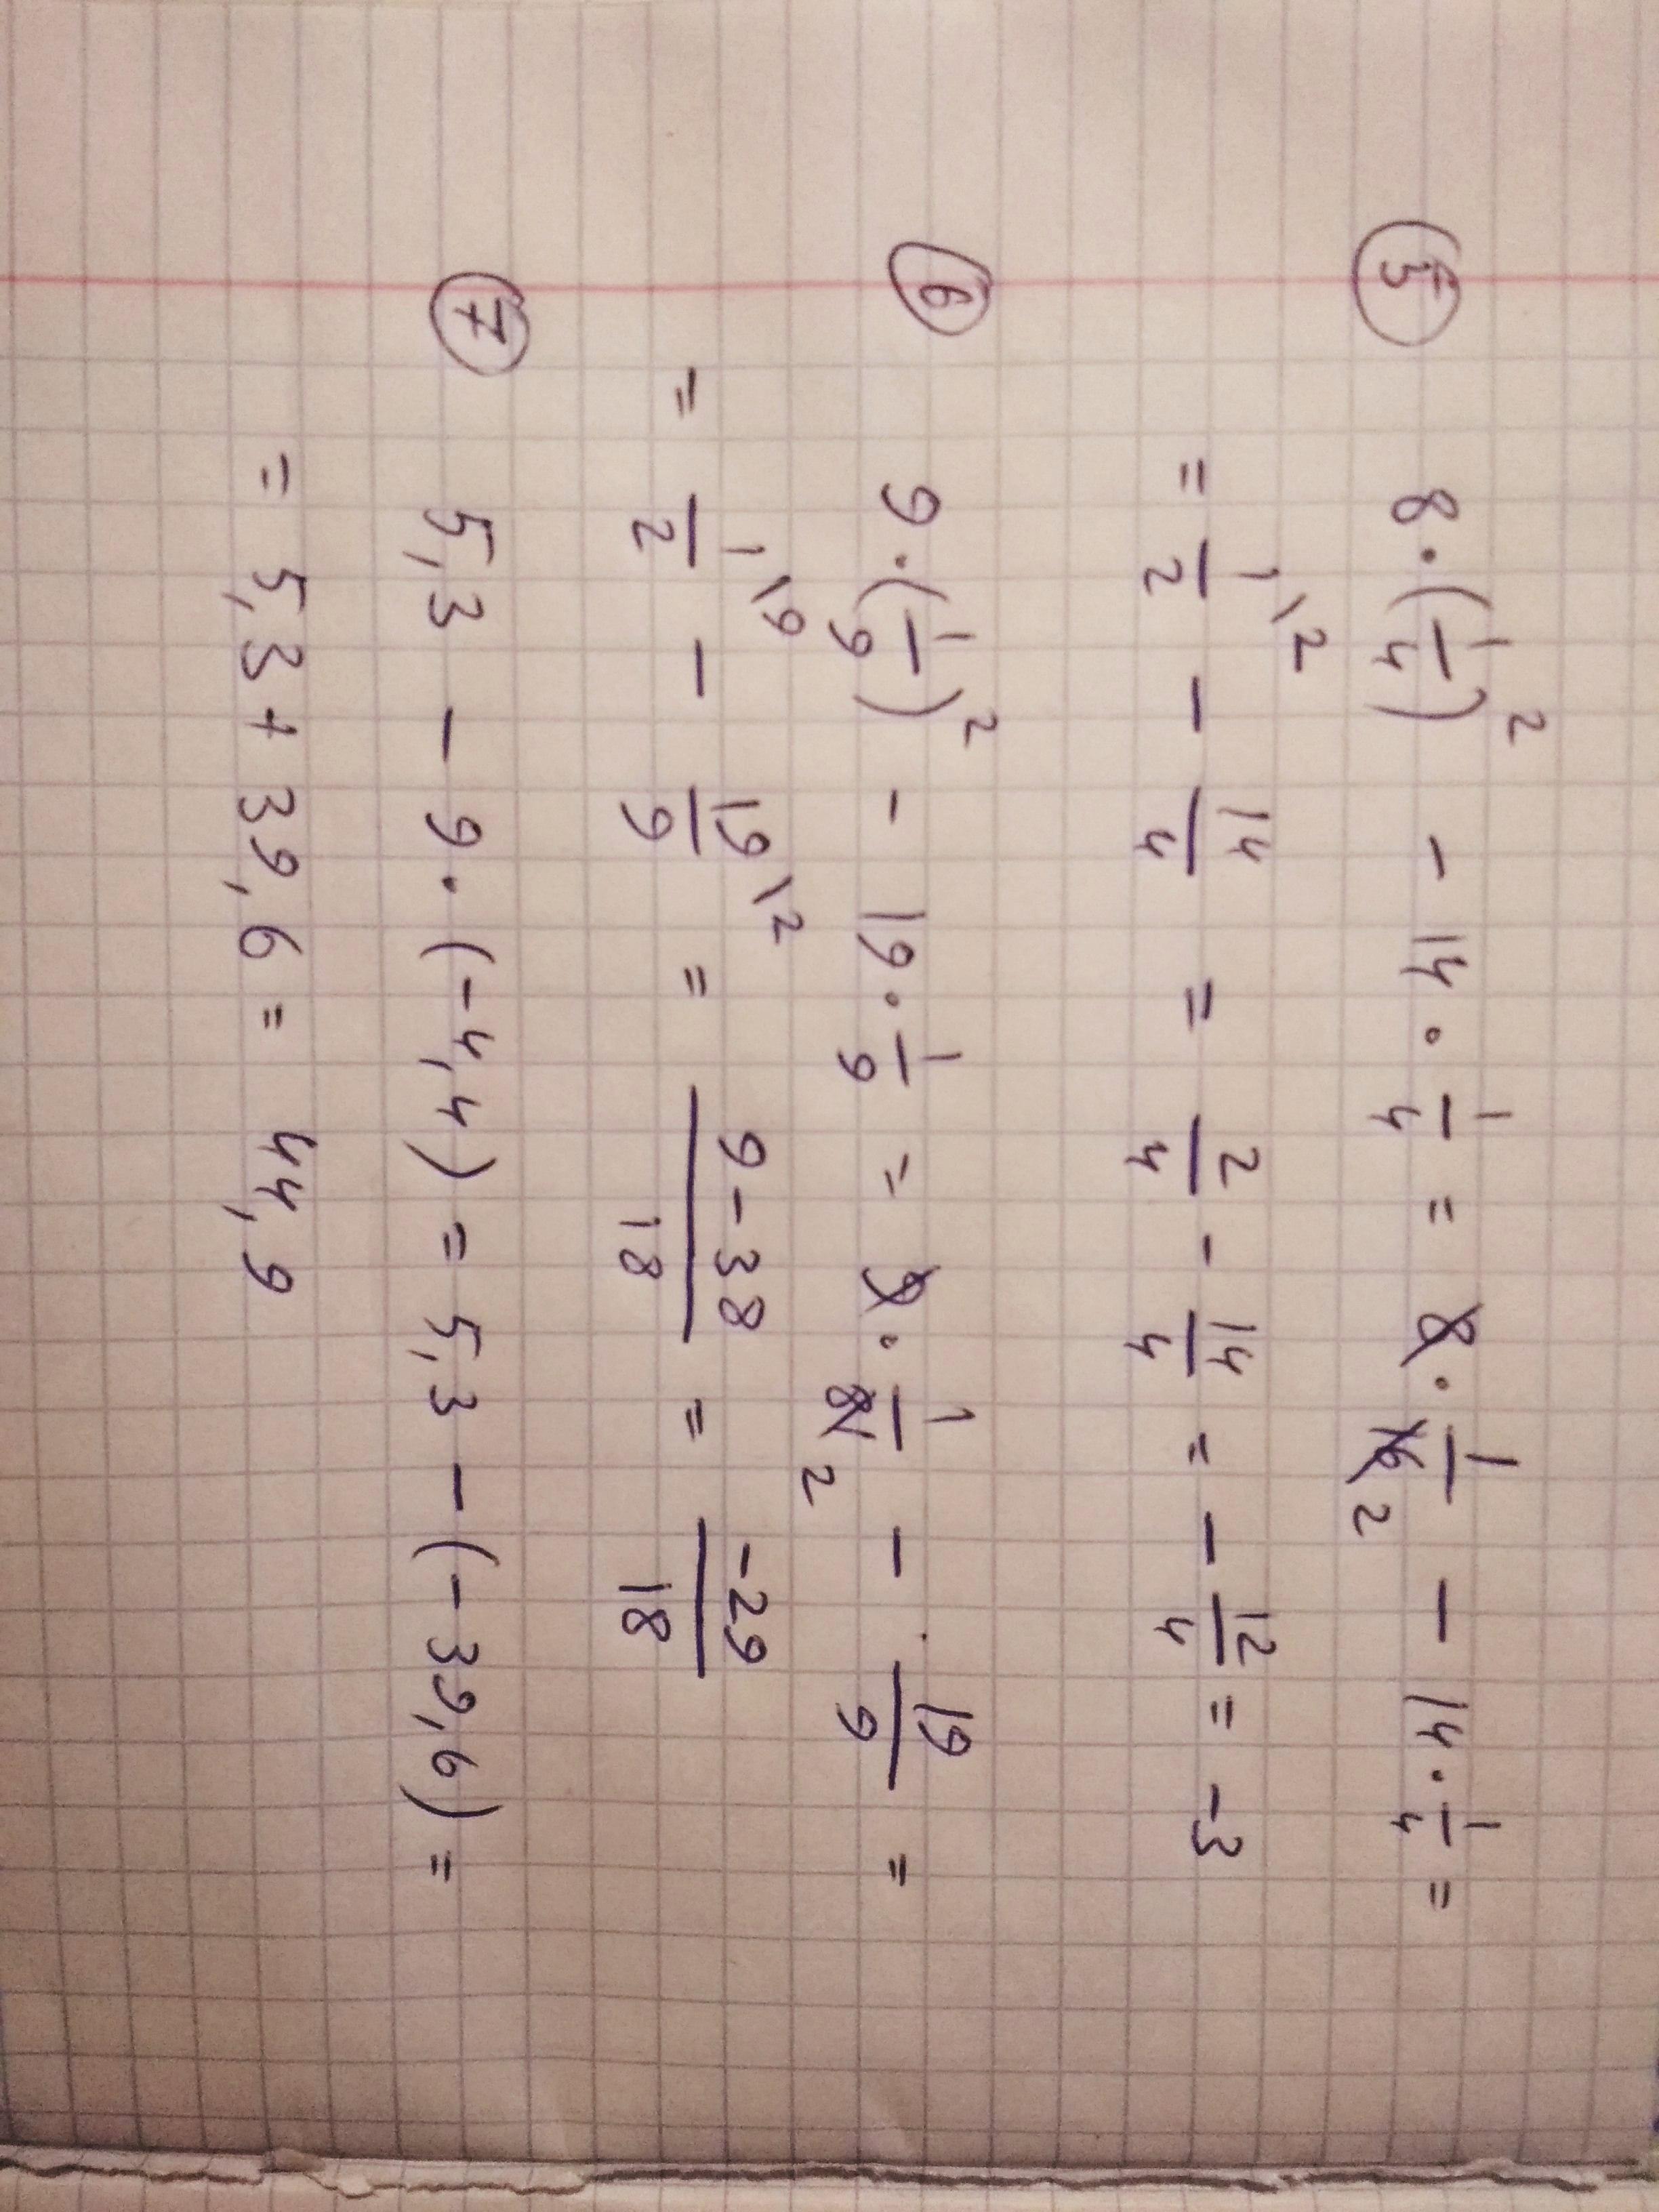 ⑤ 8·(1/4)² - 14·1/4 = 8·1/16 2 - 14·1/4 =
= 1/2\2 - 14/4 = 2/4 - 14/4 = - 12/4 = -3
⑥ 9·(1/9)² - 19·1/9 = 9·1/81 2 - 19/9 =
= 1/2\9 - 19/9\2 = 9-38/18 = -29/18
⑦ 5,3 - 9·(-4,4) = 5,3 - (-39,6) =
= 5,3 + 39,6 = 44,9